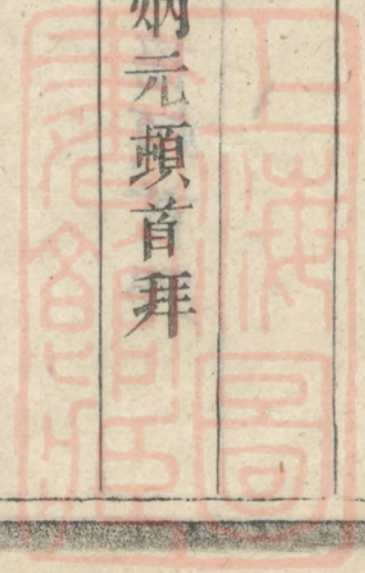 炳元頓首拜
上海圖
書館藏